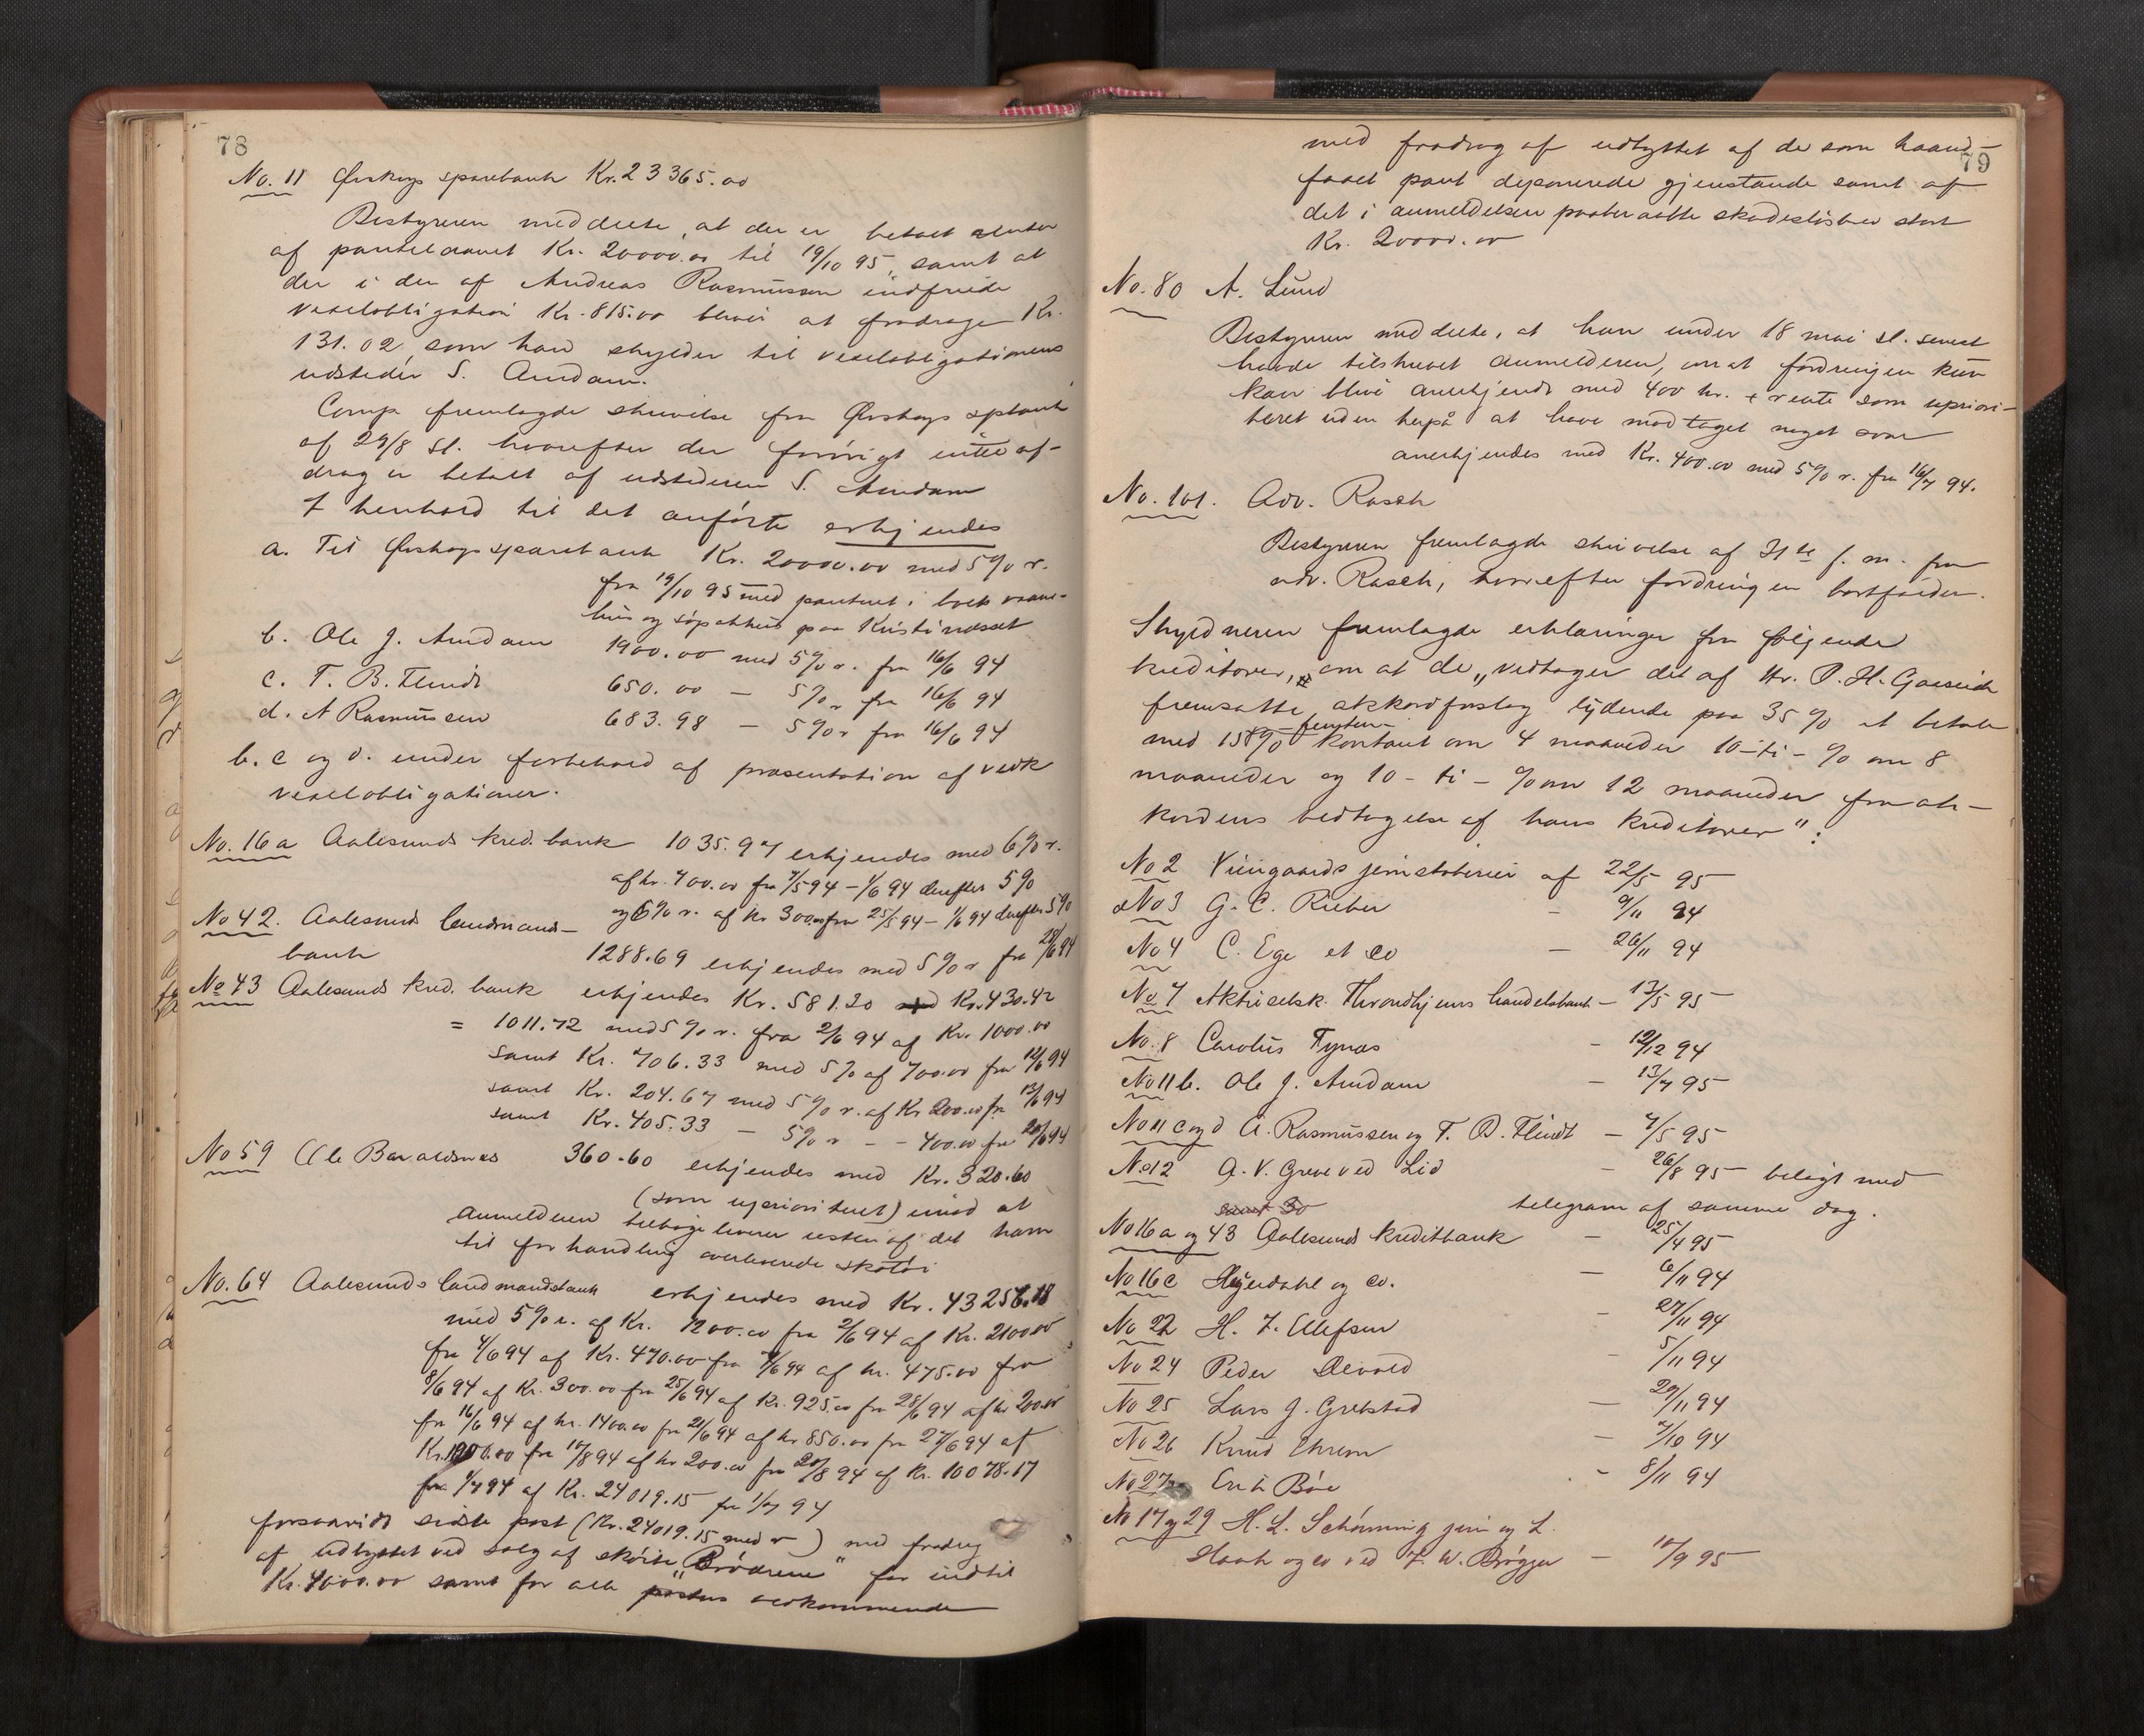 78
No. 11 Ørskogs sparebank Kr. 23365.00
Bestyreren meddelte, at der er betalt renter
af pantelaanet Kr. 20000.00 til 19/10 95, samt at
der i den af Andreas Rasmussen indfriede
vexelobligation Kr. 815.00 bliver at fradrage Kr.
131.02 som han skylder til vexelobligationens
udsteder S. Amdam.
Comp. fremlagde skrivelse fra Ørskogs spbank
af 29/8 sl. hvorefter der forøvrigt intet af-
drag er betalt af udstederen S. Amdam
I henhold til det anførte erkjendes
a. Til Ørskogs sparebank Kr. 20000.00 med 5% r.
fra 19/10 95 med panteret i
hus og søpakhus paa Kristinesset
b. Ole J. Amdam 1900.00 med 5% r. fra 16/6 94
c. T. B. Flindt 650.00 — 5% r fra 16/6 94
d. A Rasmussen 683.98 — 5% r fra 16/6 94
b. c og d. under forbehold af præsentation af vedk
vexelobligationer.
No. 16a Aalesunds kred. bank 1035.97 erkjendes med 6% r.
af kr. 700.00 fra 7/5 94 – 1/6 94 derefter 5%
og 6% r. af kr 300.00 fra 25/5 94 – 1/6 94 derefter 5%
No 42. Aalesunds landmands-
bank 1288.69 erkjendes med 5% r fra 28/6 94
No 43 Aalesunds kred. bank erkjendes Kr. 581.30 + Kr. 430.42
= 1011.72 med 5% r. fra 2/6 94 af Kr. 1000.00
samt Kr. 706.33 med 5% af 700.00 fra 12/6 94
samt Kr. 204.67 med 5% r. af Kr 200.00 fr. 13/6 94
samt Kr. 405.33 — 5% r – – 400.00 fra 20/6 94
No 59 Ole Bavaldsnes 360.60 erkjendes med Kr. 320.60
(som uprioriteret) imod at
anmelderen tilbageleverer resten af det ham
til forhandling overleverede skotøi
No. 64 Aalesunds landmandsbank erkjendes med Kr. 43256.18
med 5% r. af Kr. 1200.00 fra 2/6 94 af Kr. 2100.00
fra 4/6 94 af Kr. 470.00 fra 7/6 94 af kr. 475.00 fra
8/6 94 af Kr. 300.00 fra 25/6 94 af Kr. 925.00 fra 28/6 94 af kr 200.00
fra 16/6 94 af kr. 1400.00 fra 21/6 94 af kr 850.00 fra 27/6 94 af
Kr. fra 10/8 94 af kr 200.00 fra 20/8 94 af Kr. 10078.17
fra 1/7 94 af Kr. 24019.15 fra 1/7 94
forsaavidt sidste post (Kr. 24019.15 med r) med fradrag
af udbyttet ved salg af skøite "Brødrene" for indtil
Kr. 4000.00 samt for alle posters vedkommende
79
med fradrag af udbyttet af de som haand-
faaet pant deponerede gjenstande samt af
det i anmeldelsen paaberaabte skadesløsbrev stort
Kr. 20000.00
No. 80 A. Lund
Bestyreren meddelte, at han under 18 mai sl. senest
havde tilskrevet anmelderen, om at fordringen kun
kan blive anerkjendt med 400 kr. + rente som upriori-
teret uden herpå at have modtaget noget svar
anerkjendes med Kr. 400.00 med 5% r. fra 16/7 94.
No. 101. Adv. Rasch
Bestyreren fremlagde skrivelse af 31te f. m. fra
adv. Rasch, hvorefter fordringen bortfalder.
Skyldneren fremlagde erklæringer fra følgende
kreditorer, om at de "vedtager det af Hr. P. H. Gaaseide
fremsatte akkordforslag lydende paa 35% at betale
med 15% femten kontant om 4 maaneder 10 – ti – % om 8
maaneder og 10 – ti – % om 12 maaneder fra ak-
kordens vedtagelse af hans kreditorer":
No 2 Viingaards jernstøberi af 22/5 95
No 3 G. C. Rieber — 9/11 94
No 4 C. Ege et Co — 26/11 94
No 7 Aktieselsk. Throndhjems handelsbank – 13/5 95
No. 8 Carolus Tynæs – 12/12 94
No 11 b. Ole J. Amdam – 13/7 95
No 11 c og d A. Rasmussen og T. B. Flindt – 7/5 95
No 12 A. V. Greve ved Lid – 26/8 95 belagt med
telegram af samme dag.
No 16a og 43 Aalesunds kreditbank – 25/4 95
No 16c Heyerdahl og Co. – 6/11 94
No 22 H. J. Ellefsen – 27/11 94
No 24 Peder Devold – 5/11 94
No 25 Lars J. Grebstad — 29/11 94
No 26 Knud Ekrem – 7/10 94
No 27 Erik Bøe – 8/11 94
No 17 og 29 H. L. Schønning jun og L.
Haak og Co ved F. W. Brøgger – 10/9 95